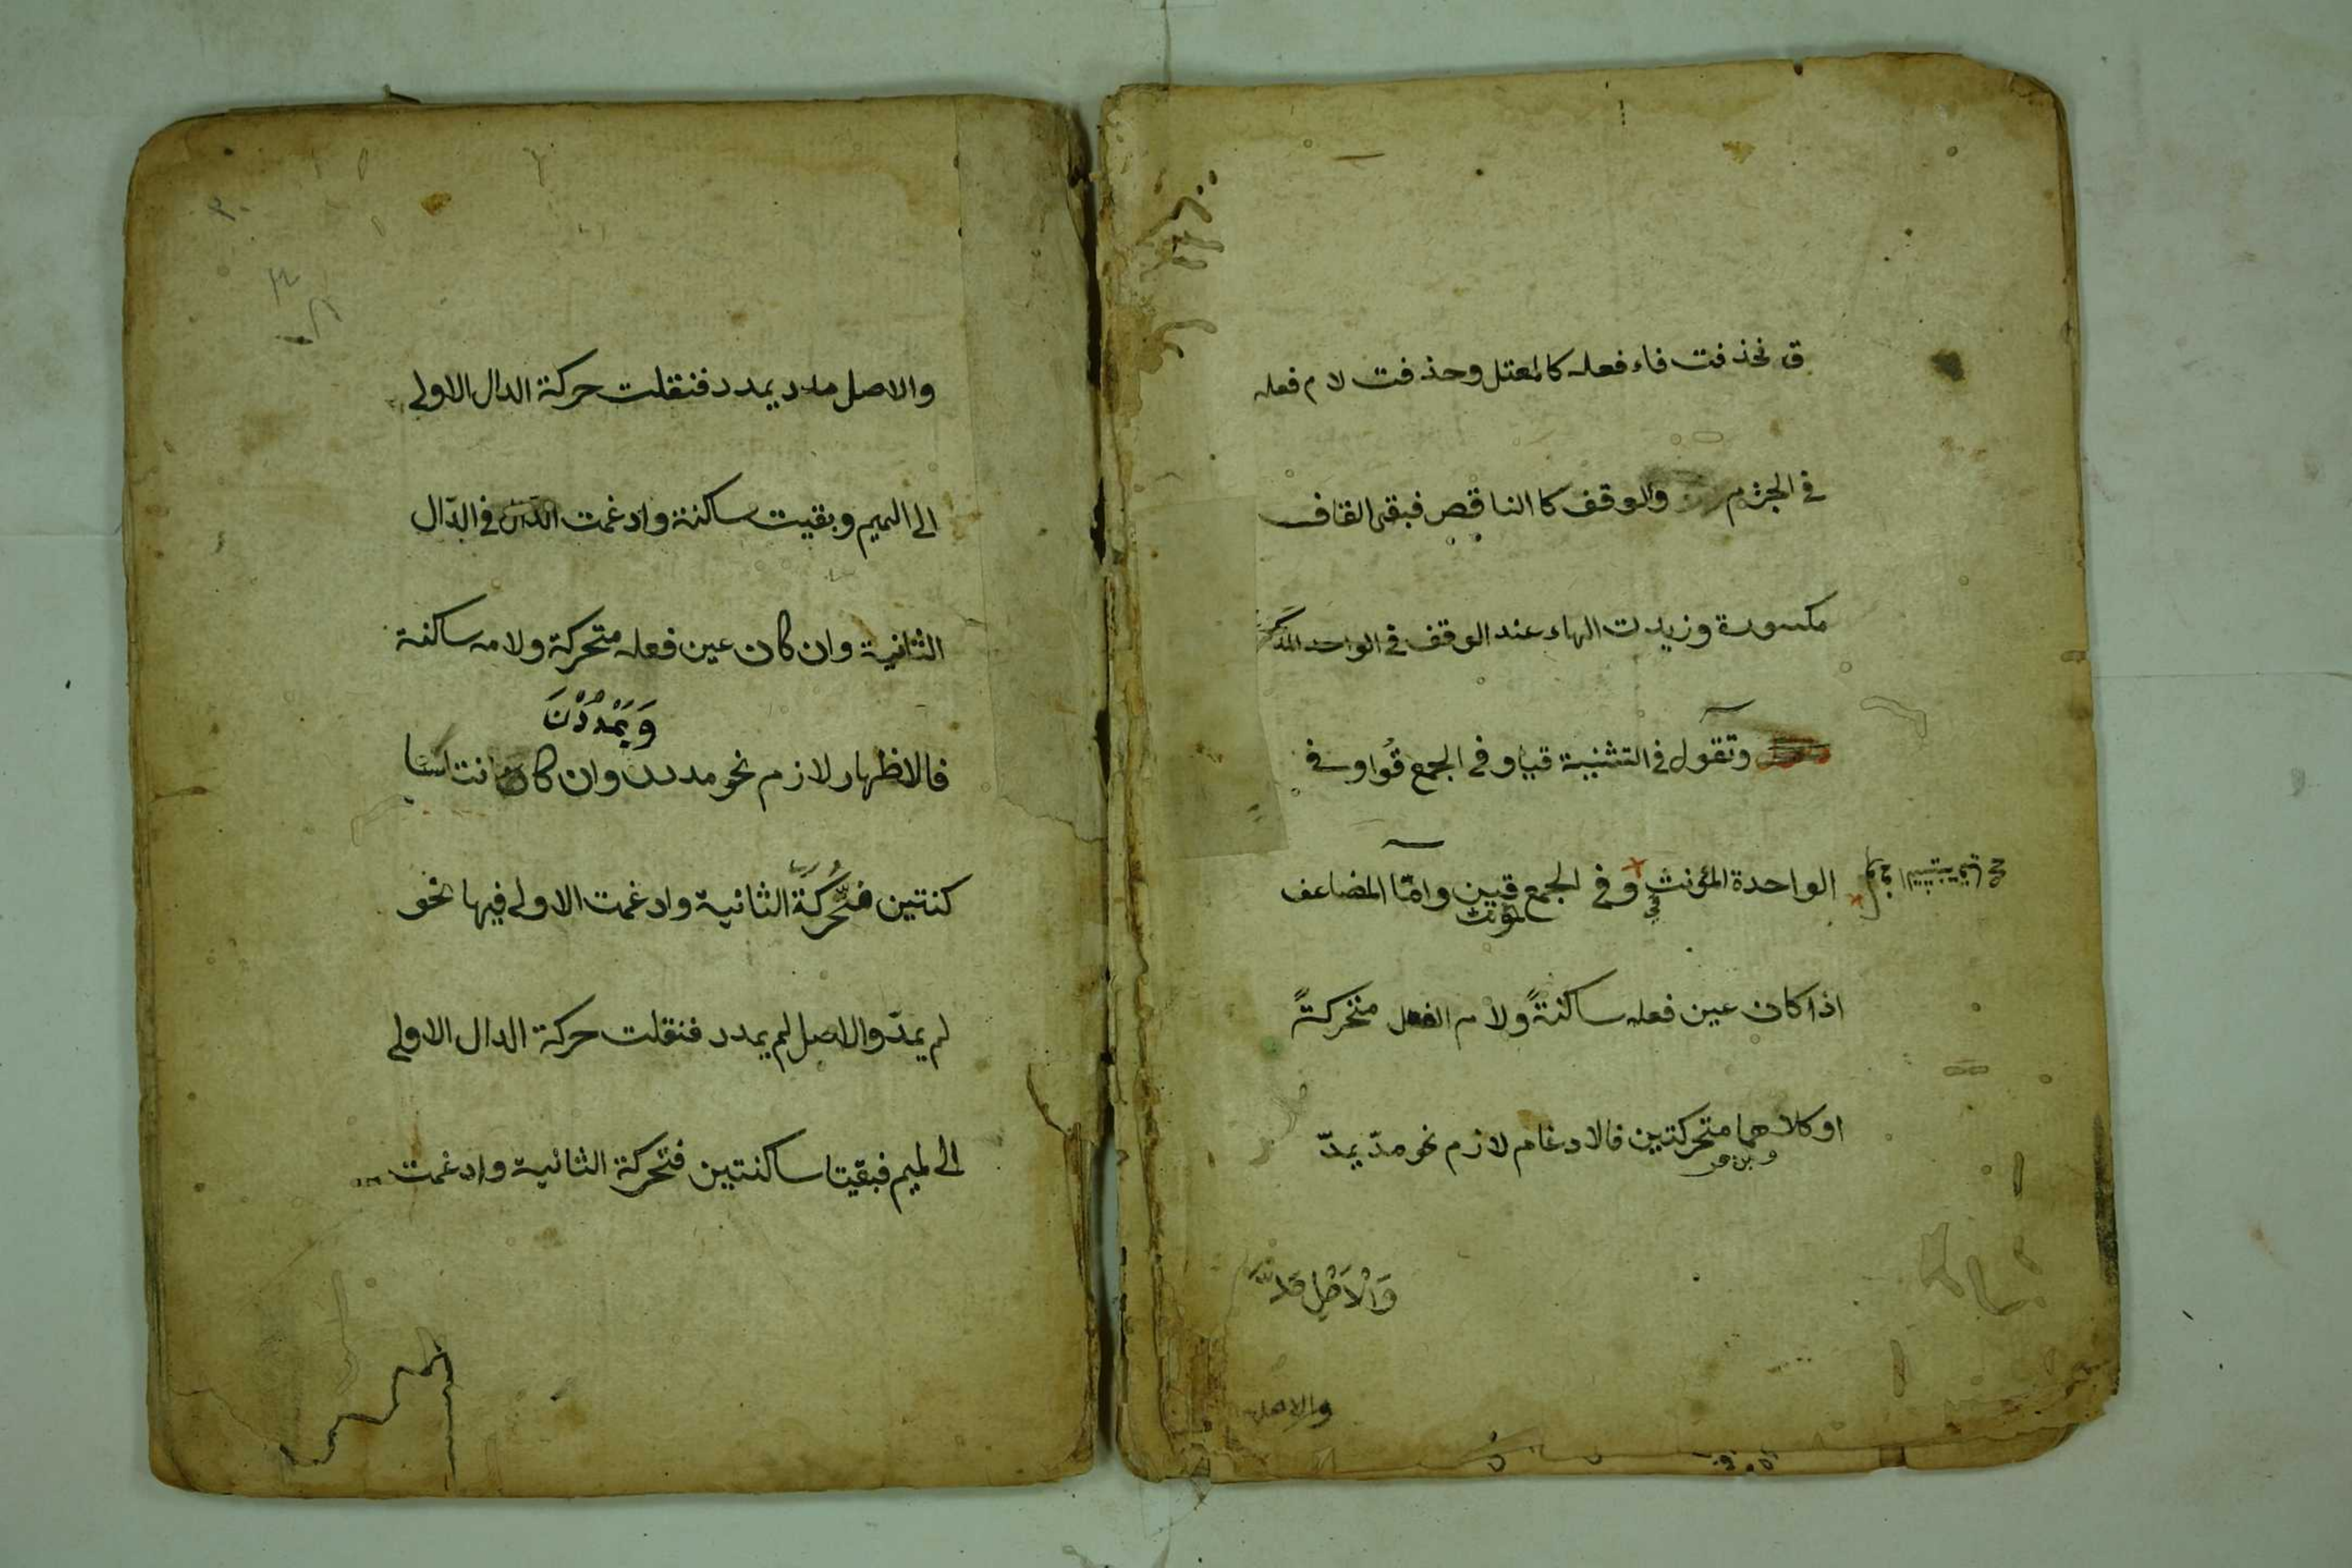 ق فحذفت فاء فعله كالمعتل وحذفت لام فعله
في الجزم والوقف كالناقص فبقى القاف
مكسورة وزيدت الهاء عند الوقف في الواحد المذكر
وتقول في التثنية قيا وفي الجمع قُوا وفي
الواحدة المؤنث قي وفي الجمع المؤنث قين وامّا المضاعف
اذا كان عين فعله ساكنةً ولام الفعل متحركةً
او كلاهما متحركتين فالادغام لازم نحو مدّ يمدّ
وَالْاَصْل
والاصل
٣٠
والاصل مدد يمدد فنقلت حركة الدال الاولى
الى الميم وبقيت ساكنة وادغمت في الدّال
الثانية وان كان عين فعله متحركة ولامه ساكنة
وَيَمْدُدْنَ
فالاظهار لازم نحو مددن وان كانتا سا
كنتين فتُحرّكةً الثانية وادغمت الاولى فيها نحو
لم يمدّ والاصل لم يمدد فنقلت حركة الدال الاولى
الى لميم فبقيتا ساكنتين فتحركة الثانية وادغمت